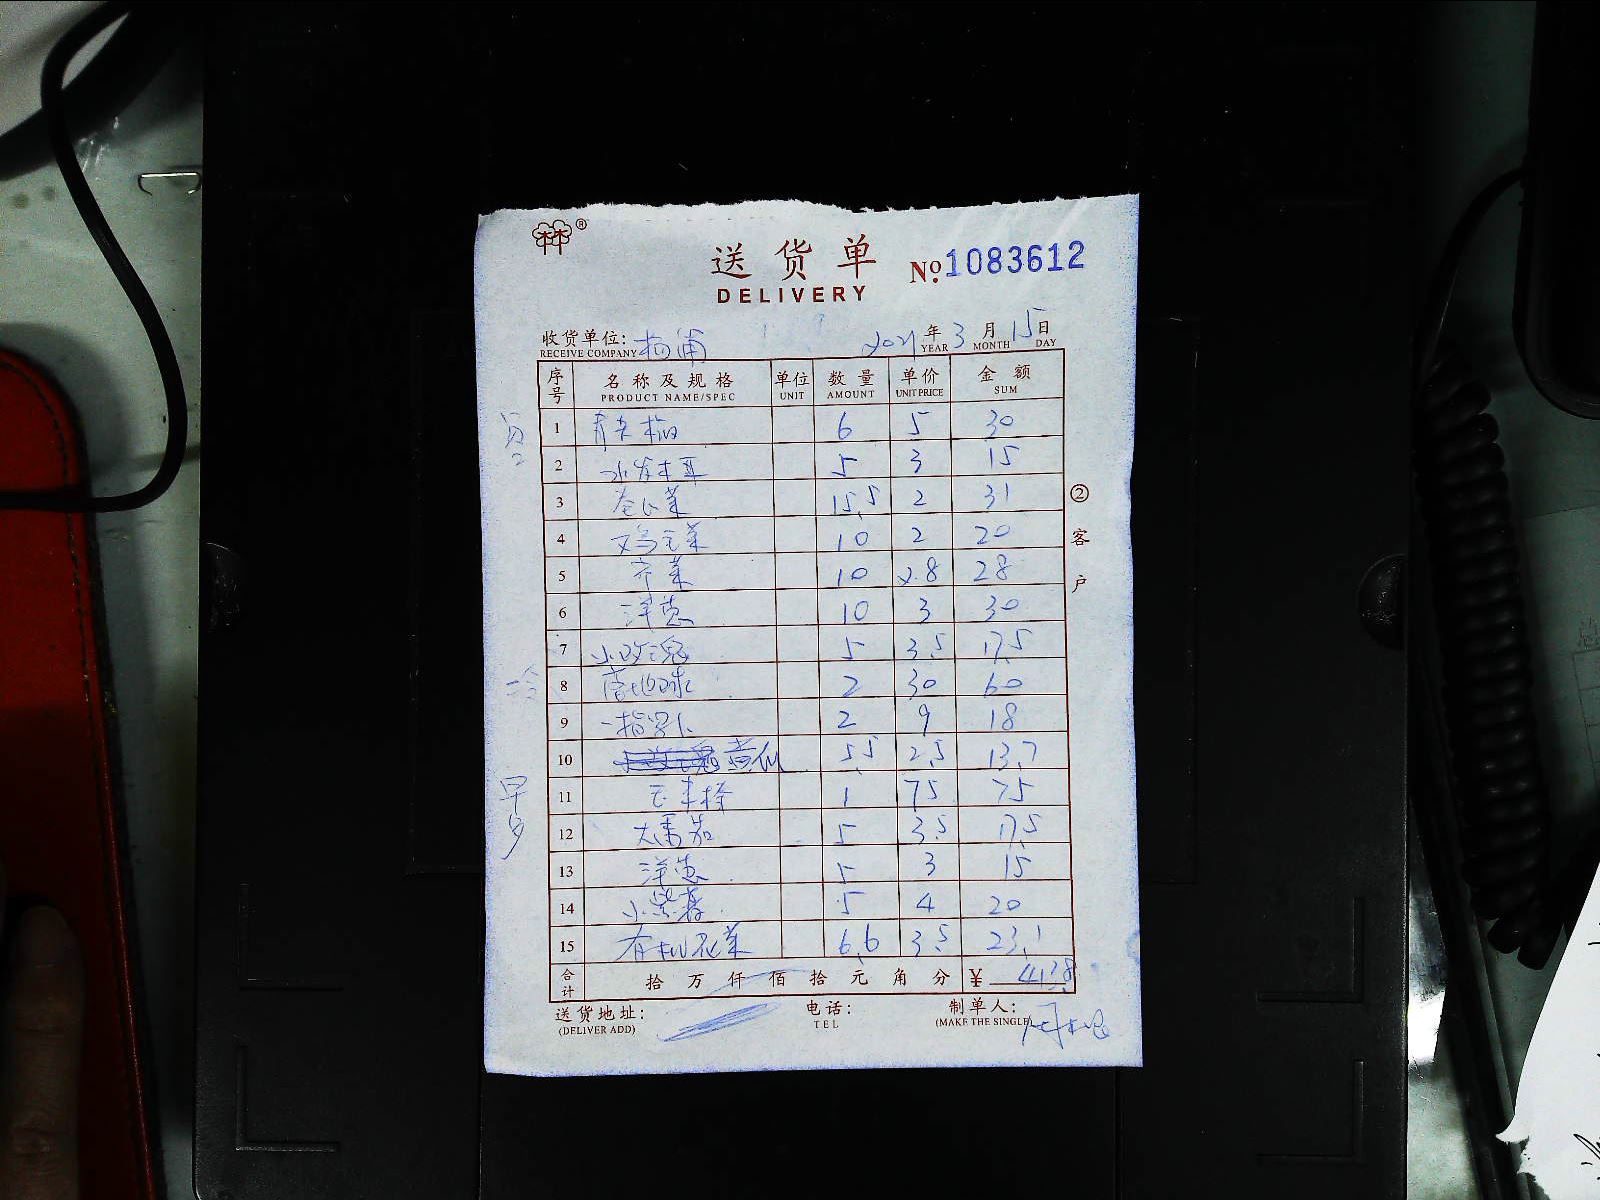 ®
送货单 No.1083612
DELIVERY
收货单位: 杨浦 2021 年 3 月 15 日
RECEIVE COMPANY YEAR MONTH DAY
序号 名称及规格 单位 数量 单价 金额
PRODUCT NAME/SPEC UNIT AMOUNT UNIT PRICE SUM
1 6 5 30
2 水发木耳 5 3 15
3 卷心菜 15.5 2 31
4 10 2 20
5 芹菜 10 2.8 28
6 洋葱 10 3 30
7 小玫瑰 5 3.5 17.5
8 2 30 60
9 2 9 18
10 5.5 2.5 13.7
11 1 75 75
12 大番茄 5 3.5 17.5
13 洋葱 5 3 15
14 小紫薯 5 4 20
15 有机花菜 6.6 3.5 23.1
合计 拾 万 仟 佰 拾 元 角 分 ¥ 413.8
送货地址: 电话: 制单人:
(DELIVER ADD) TEL (MAKE THE SINGLE)
②客户